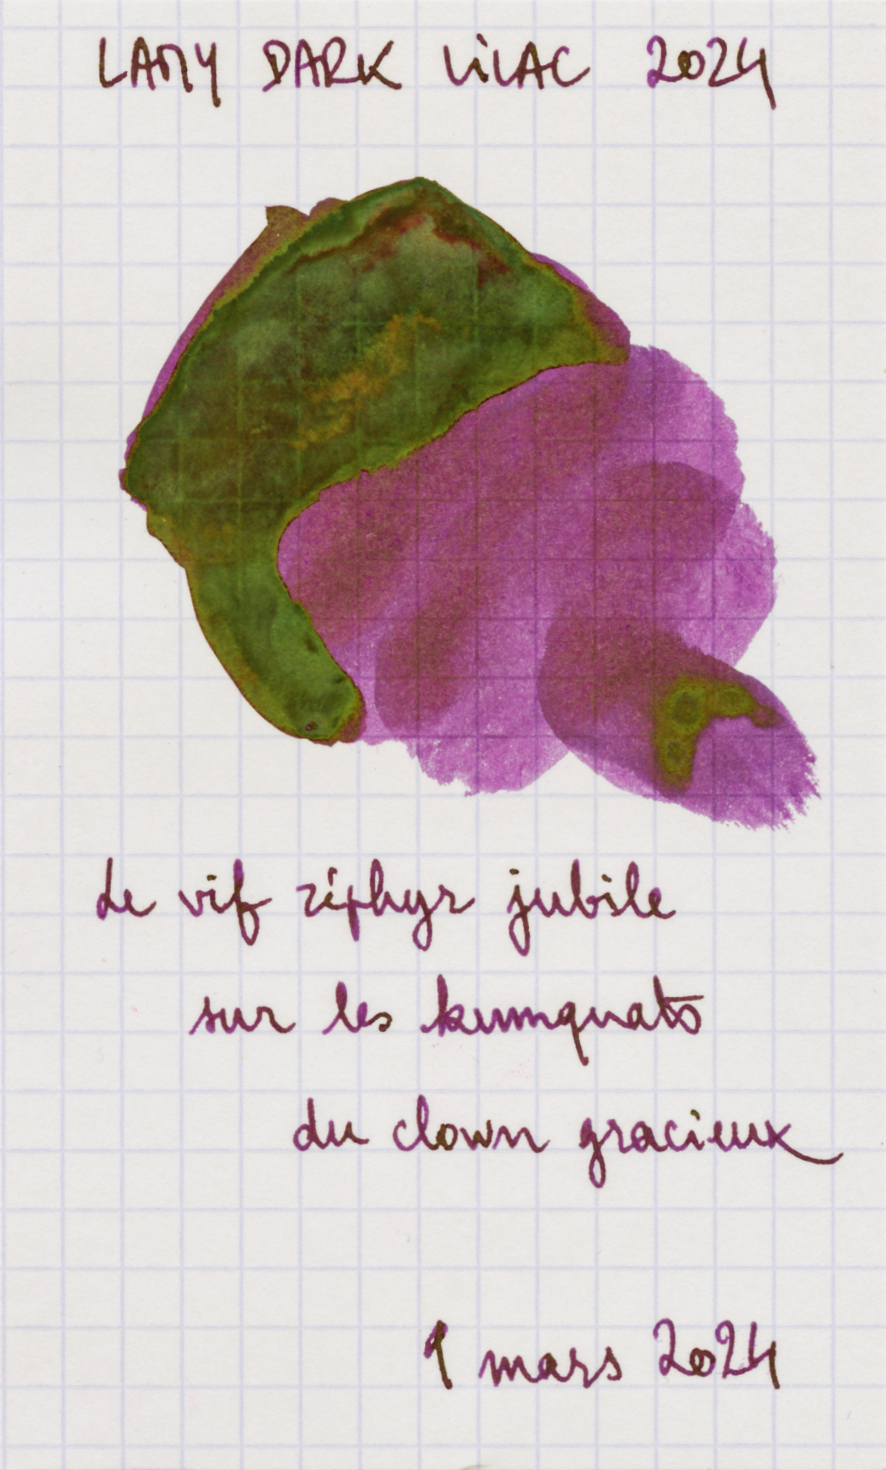 LAMY DARK LiLAC 2024
Le vif zéphyr jubile
sur les kumquats
du clown gracieux
1 mars 2024